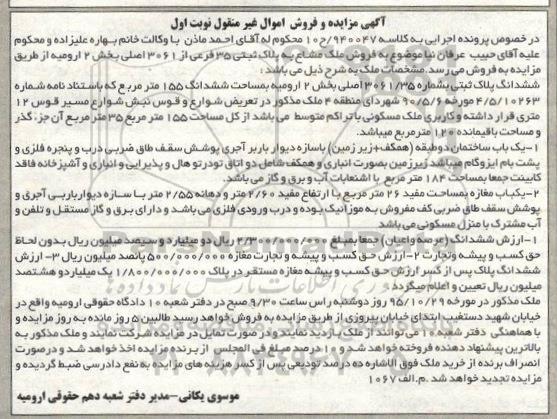 آگهی مزایده و فروش اموال غیر منقول نوبت اول
در خصوص پرونده اجرایی به کلاسه ۹۴۰۰۴۷/ج۱۰ محکوم له آقای احمد ماذن با وکالت خانم بهاره علیزاده و محکوم
علیه آقای حبیب عرفان نیا موضوع به فروش ملک مشاع به پلاک ثبتی ۳۵ فرعی از ۳۰۶۱ اصلی بخش ۲ ارومیه از طریق
مزایده به فروش می رسد. مشخصات ملک به شرح ذیل می باشد:
ششدانگ پلاک ثبتی بشماره ۳۰۶۱/۳۵ اصلی بخش ۲ ارومیه بمساحت ششدانگ ۱۵۵ متر مربع که باستناد نامه شماره
۴/۵/۱۰۲۶۳ مورخه ۹۰/۵/۶ شهردای منطقه ۴ ملک مذکور در تعریض شوارع و قوس نبش شوارع مسیر قوس ۱۲
متری قرار داشته و کاربری ملک مسکونی با تراکم متوسط می باشد از کل مساحت ۱۵۵ متر مربع ۳۵ متر مربع آن جزء گذر
و مساحت باقیمانده ۱۲۰ متر مربع میباشد.
۱-یک باب ساختمان دوطبقه (همکف+زیر زمین) باسازه دیوار باربر آجری پوشش سقف طاق ضربی درب و پنجره فلزی و
پشت بام ایزوگام میباشد زیرزمین بصورت انباری و همکف شامل دو اتاق تودرتو هال و پذیرایی و انباری و آشپزخانه فاقد
کابینت جمعا بمساحت ۱۸۴ متر مربع با اشنعابات آب و برق و گاز می باشد.
۲-یکباب مغازه بمساحت مفید ۲۶ متر مربع با ارتفاع مفید ۲/۶۰ متر و دهانه ۲/۵۵ متر با سازه دیوار باربر آجری و
پوشش سقف طاق ضربی کف مفروش به موزائیک بوده و درب ورودی فلزی می باشد و دارای برق و گاز مستقل و تلفن و
آب مشترک با منزل مسکونی می باشد
۱-ارزش ششدانگ (عرصه واعیان) جمعا بمبلغ ۲/۳۰۰/۰۰۰/۰۰۰ ریال دو میلیارد و سیصد میلیون ریال بدون لحاظ
حق کسب و پیشه وتجارت ۲-ارزش حق کسب و پیشه و تجارت مغازه ۵۰۰/۰۰۰/۰۰۰ پانصد میلیون ریال ۳- ارزش
ششدانگ پلاک پس از کسر ارزش حق کسب و پیشه مغازه مستقر در پلاک ۱/۸۰۰/۰۰۰/۰۰۰ یک میلیارد و هشتصد
میلیون ریال تعیین و اعلام میگردد
ملک مذکور در مورخه ۹۵/۱۰/۲۹ روز دوشنبه راس ساعت ۹/۳۰ صبح در دفتر شعبه ۱۰ دادگاه حقوقی ارومیه واقع در
خیابان شهید دستغیب ابتدای خیابان پیروزی از طریق مزایده به فروش خواهد رسید طالبین ۵ روز مانده به روز مزایده و
با هماهنگی دفتر شعبه ۱۰ می توانند از ملک بازدید نمایند و در صورت تمایل در مزایده شرکت نمایند و ملک مذکور به
بالاترین پیشنهاد دهنده فروخته خواهد شد و ۱۰ درصد مبلغ فی المجلس از برنده مزایده اخذ خواهد شد و در صورت
انصراف برنده از خرید ملک فوق الاشاره ده درصد تودیعی پس از کسر هزینه های مزایده به نفع دادرسی ضبط گردیده و
مزایده تجدید خواهد شد .م.الف ۱۰۶۷
موسوی یکانی-مدیر دفتر شعبه دهم حقوقی ارومیه